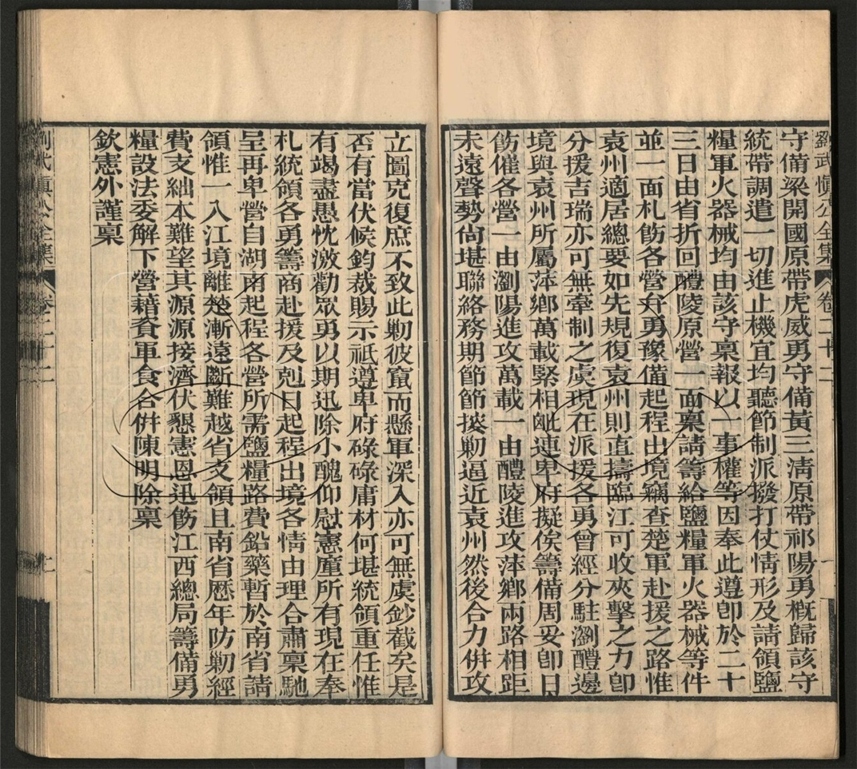 劉武愼公全集 卷二十二
守備梁開國原帶虎威勇守備黃三清原帶祁陽勇概歸該守
統帶調遣一切進止機宜均聽節制派撥打仗情形及請領鹽
糧軍火器械均由該守稟報以一事權等因奉此遵卽於二十
三日由省折回醴陵原營一面稟請籌給鹽糧軍火器械等件
並一面札飭各營弁勇豫備起程出境竊查楚軍赴援之路惟
袁州適居總要如先規復袁州則直擣臨江可收夾擊之力卽
分援吉瑞亦可無牽制之虞現在派援各勇曾經分駐瀏醴邊
境與袁州所屬萍鄉萬載緊相毗連卑府擬俟籌備周妥卽日
飭催各營一由瀏陽進攻萬載一由醴陵進攻萍鄉兩路相距
未遠聲勢尙堪聯絡務期節節挨勦逼近袁州然後合力併攻
立圖克復庶不致此勦彼竄而懸軍深入亦可無虞鈔截矣是
否有當伏候鈞裁賜示祗遵卑府碌碌庸材何堪統領重任惟
有竭盡愚忱激勸眾勇以期迅除小醜仰慰憲廑所有現在奉
札統領各勇籌商赴援及剋日起程出境各情由理合肅稟馳
呈再卑營自湖南起程各營所需鹽糧路費鉛藥暫於南省請
領惟一入江境離楚漸遠斷難越省支領且南省歷年防勦經
費支絀本難望其源源接濟伏懇憲恩迅飭江西總局籌備勇
糧設法委解下營藉資軍食合併陳明除稟
欽憲外謹稟
劉武愼公全集 卷二十二